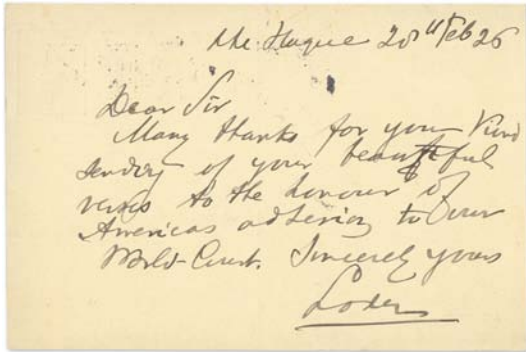 The Hague 20th Feb 26
Dear Sir
Many thanks for your kind
sending of your beautiful
verses to the honour of
Americas adhering to our
World-Court. Sincerely yours
Loder